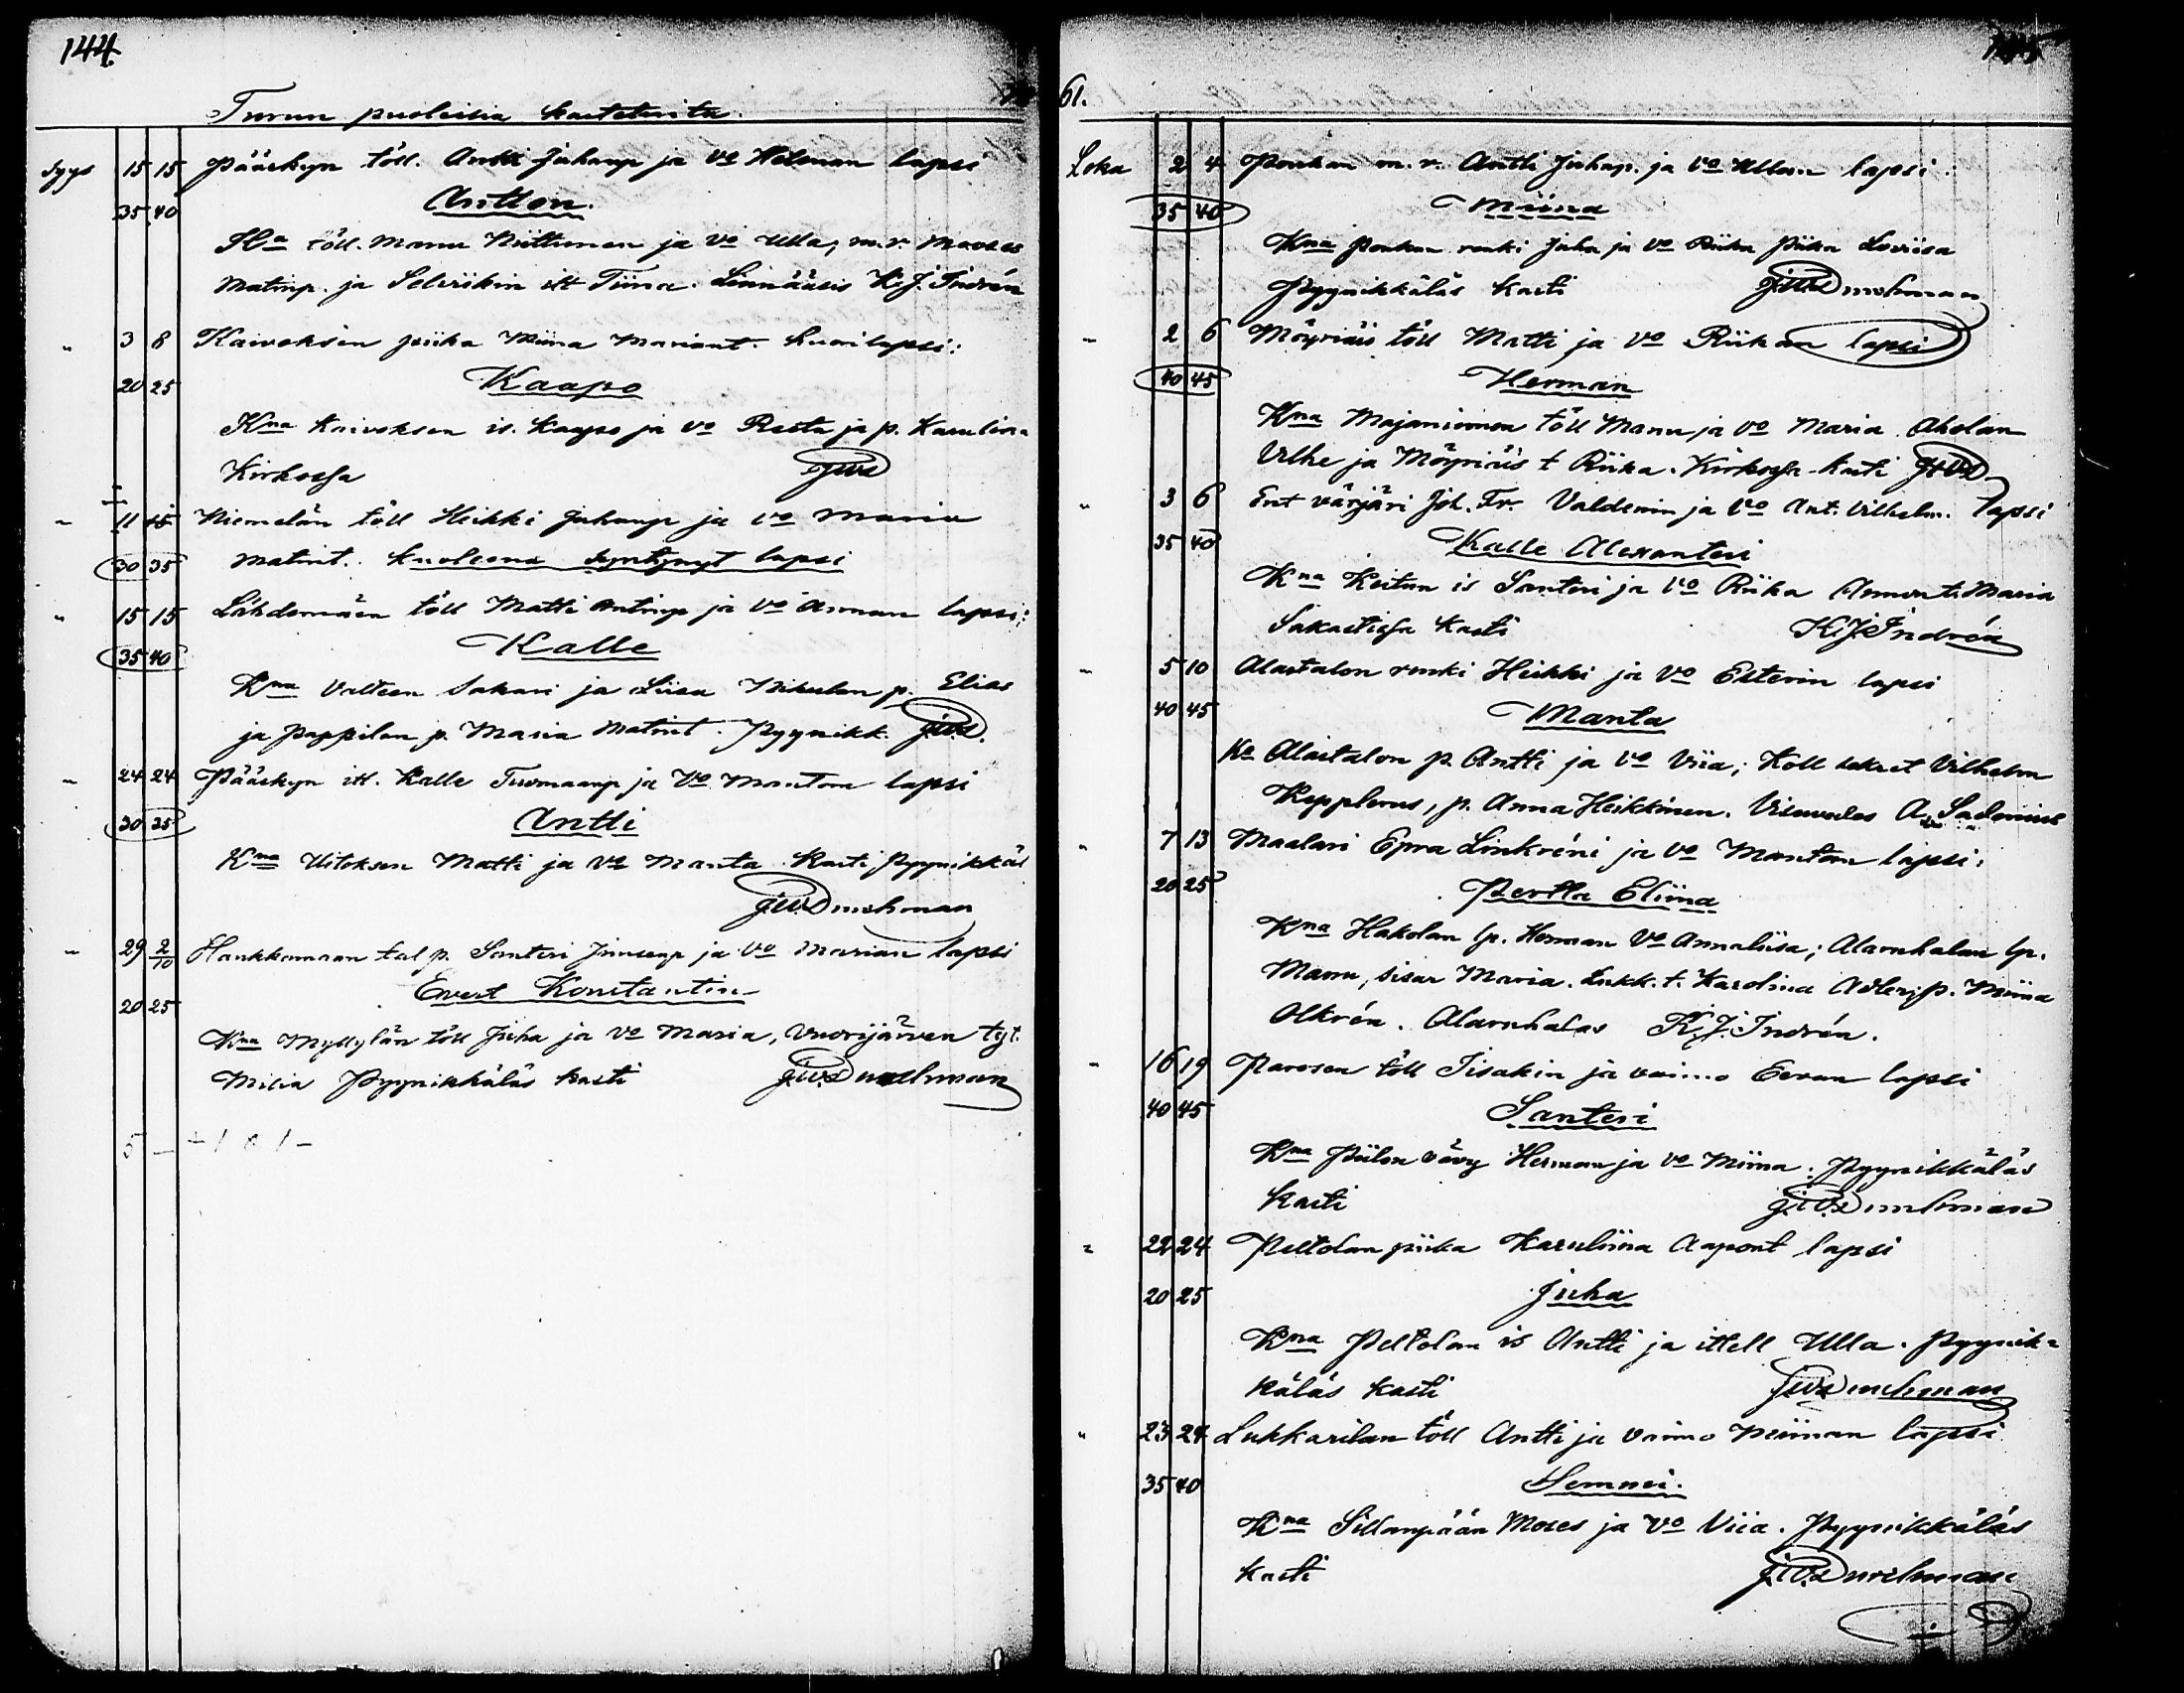 144
Turun puoleisia kastetuita.
Syys 15 15 Pääskyn töll. Antti Juhanp ja vo Helenan lapsi
Antton.
35 40
Kna töll. Manu Niittunen ja vo Ulla, m.r. Mooses
Matinp. ja Selvrikin itt Tiina. Linnääsis K.J. Indrén
" 3 8 Kaivoksen piika Miina Mariant. huorilapsi:
20 25 Kaapo
Kna Kaivoksen is. Kaapo ja vo Reeta ja p. Karulina
Kirkossa JWS
" 11 15 Niemelän töll Heikki Juhanp ja vo Maria
30 35 Matint. kuolleena syntynyt lapsi
" 15 15 Lähdemäen töll Matti Antinp ja vo Annan lapsi:
Kalle
35 40
Kna Valteen Sakari ja Liisa Nikulan p. Elias
ja Pappilan p. Maria Matint. Pyynikk. JWS.
" 24 24 Pääskyn itl. Kalle Tuomaanp ja vo Mantan lapsi
30 35 Antti
Kna Uitoksen Matti ja vo Manta. Kasti Pyynikkäl
JWS
" 29 2/10 Hankkamaan tal p. Santeri ja vo Marian lapsi
Evert Konstantin
20 25
Kna Myllylän töll Juha ja vo Maria, Vuorijärven tyt.
Milia Pyynikkäläs kasti JWS
61.
Loka 2 4 Poukan m.r. Antti Juhap. ja vo Ullan lapsi:
35 40 Miina
Kna Poukan renki Juha ja vo Riika Piika Loviisa
Pyynikkäläs kasti JWS
" 2 6 Möyriäis töll Matti ja vo Riikan lapsi
40 45 Herman
Kna Majaniemen töll Manu ja vo Maria. Aholan
Ulhe ja Möyriäis t Riika. Kirkossa kasti JWS
" 3 6 Ent värjäri Joh. Fr. Valdenin ja vo Ant. Vilhelm. lapsi
35 40 Kalle Alexanteri
Kna Keitun is Santeri ja vo Riika Annan t. Maria
Sakastissa kasti K.J. Indrén
" 5 10 Alastalon renki Heikki ja vo Esterin lapsi
40 45 Manta
Kna Alastalon p. Antti ja vo Viia; Koll sekret Vilhelm
Kepplerus, p. Anna Heikkinen. A. Sadenius
" 7 13 Maalari Epra Linkréni ja vo Mantan lapsi:
20 25 Pertta Eliina
Kna Hakolan lp. Herman vo Annaliisa; Alarnhalan lp.
Manu, sisar Maria. Lukk. t. Karolina Adler, p. Miina
Olkrén. Alarnhalas K.J. Indrén.
" 16 19 Parosen töll Iisakin ja vaimo Eevan lapsi
40 45 Santeri
Kna Piilon vävy Herman ja vo Miina. Pyynikkäläs
kasti JWS
" 22 24 Peltolan piika Karuliina Aapont lapsi
20 25 Juha
Kna Peltolan is Antti ja itell Ulla. Pyynik=
käläs kasti JWS
" 23 24 Lukkarilan töll Antti ja vaimo Miinan lapsi
35 40 Hemmi.
Kna Sillanpään Moses ja vo Viia. Pyynikkäläs
kasti JWS